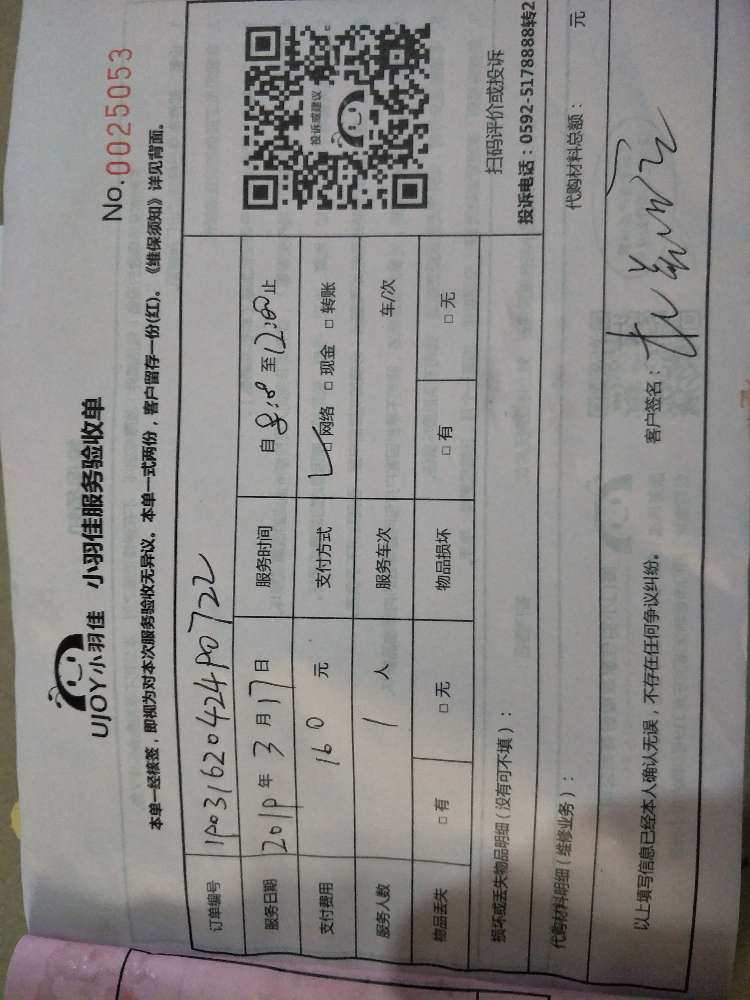 No.0025053
UJOY小羽佳 小羽佳服务验收单
本单一经核签，即视为对本次服务验收无异议。本单一式两份，客户留存一份(红)。《维保须知》详见背面。
订单编号 1903162042490722
服务日期 2019年3月17日 服务时间 自8:00至12:00止
支付费用 160元 支付方式 ☑网络 □现金 □转账
服务人数 1人 服务车次 车/次
物品丢失 □有 □无 物品损坏 □有 □无
投诉或建议
扫码评价或投诉
投诉电话：0592-5178888转2
损坏或丢失物品明细（没有可不填）：
代购材料明细（维修业务）： 代购材料总额： 元
以上填写信息已经本人确认无误，不存在任何争议纠纷。 客户签名：